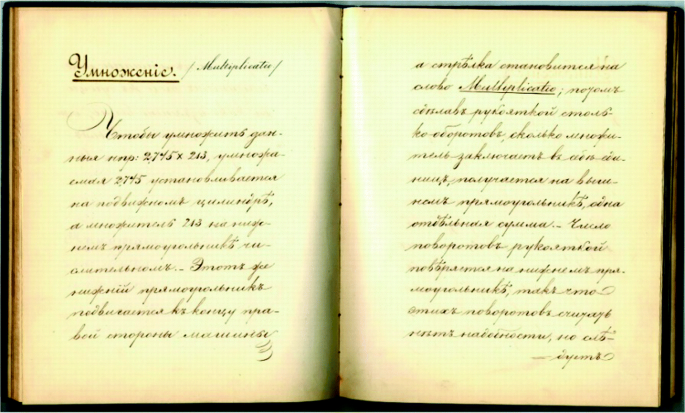 Умноженіе. /Multiplicatio/
Чтобы умножить дан-
ныя нпр: 2745 x 213, умножа-
емая 2745 установливается
на подвижномъ цилиндрѣ,
а множитель 213 на ниж-
немъ прямоугольникѣ чи-
слительномъ. - Этотъ же
нижній прямоугольникъ
подвигается къ концу пра-
вой стороны машины
а стрѣлка становится на
слово Multiplicatio; потомъ
сдѣлавъ рукояткой столь-
ко оборотовъ, сколько множи-
тель заключаетъ въ себѣ еди-
ницъ, получается на выш-
немъ прямоугольникѣ, одна
отдѣльная сумма. - Число
поворотовъ рукояткой
повѣряется на нижнемъ пря-
моугольникѣ, такъ что
этихъ поворотовъ считать
нѣтъ надобности, но слѣ-
дуетъ